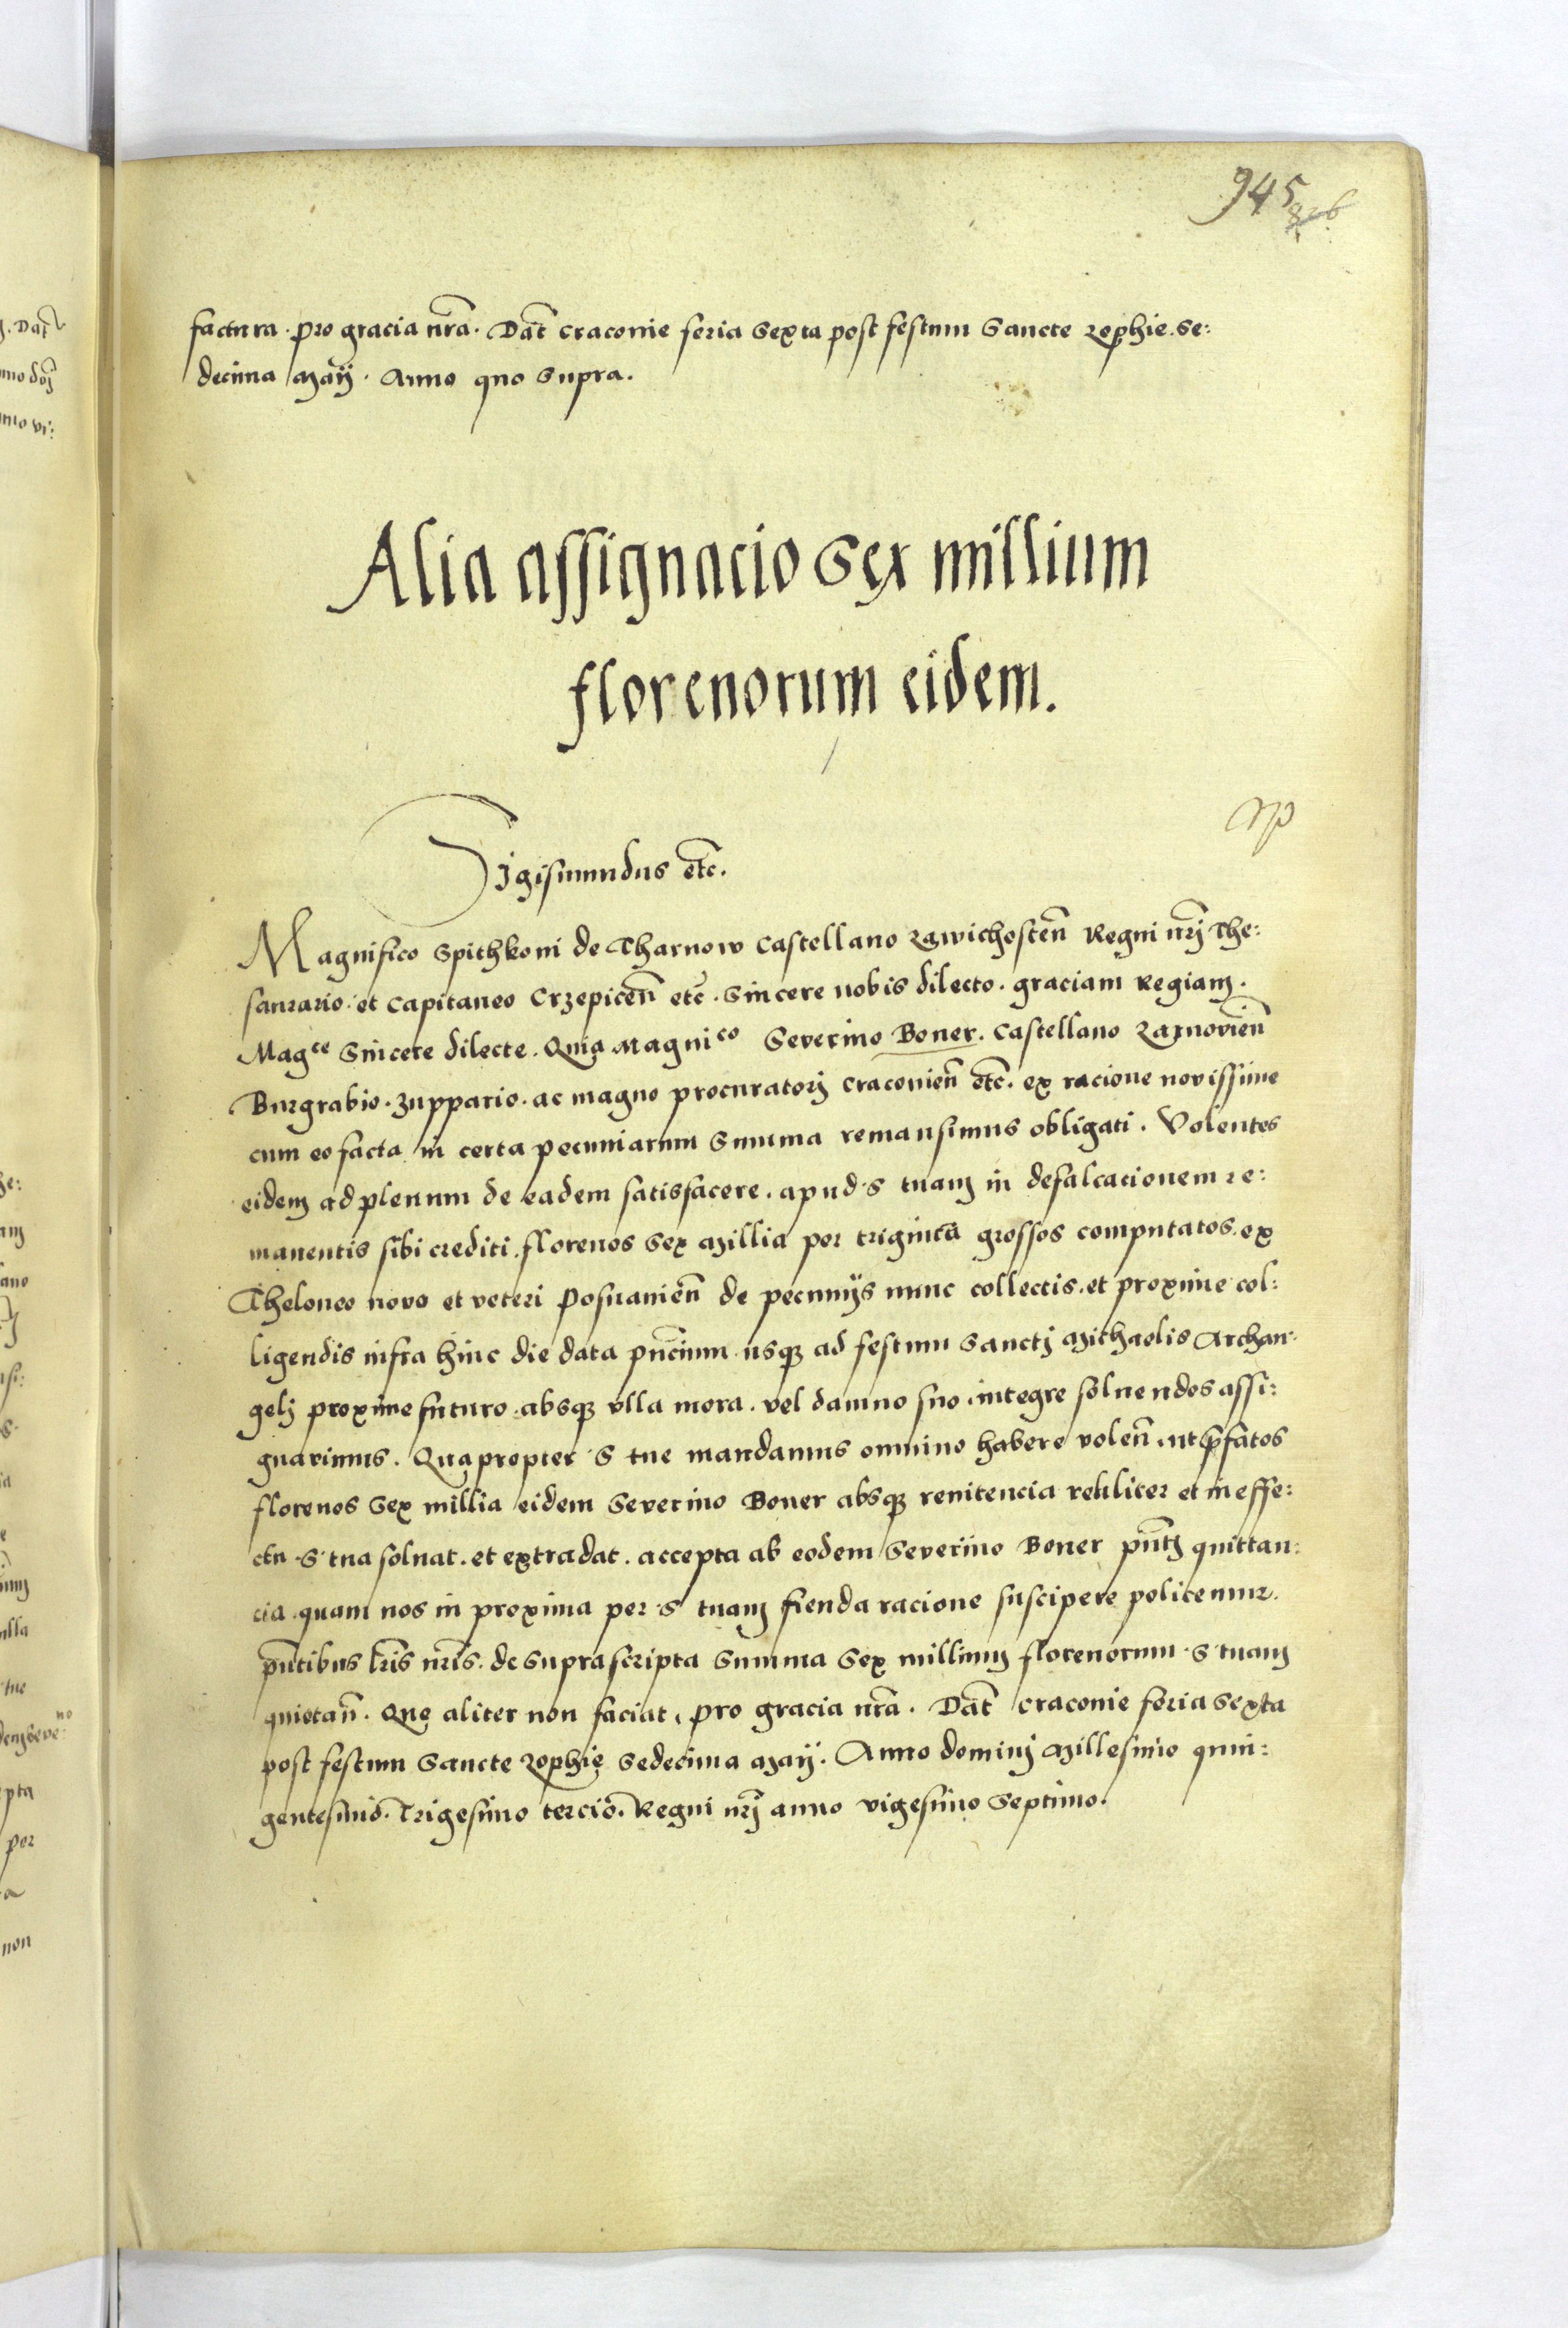 945
factura. pro gracia nr̃a. Dat̃ Cracovie feria Sexta post festum Sancte Zophie. Se:
decima Maÿ. Anno quo Supra.
Alia assignacio Sex millium
florenorum eidem.
Sigismundus etc̃.
Magnifico Spithkoni de Tharnow Castellano Zawichosteñ Regni nr̃j The:
saurario. et Capitaneo Crzepiceñ etc̃. Sincere nobis dilecto. graciam Regiam.
Mag^ce Sincere dilecte. Quia Magni^co Severino Boner. Castellano Zarnovieñ
Burgrabio. Zuppario. ac magno procuratorj Cracovieñ etc̃. ex racione novissime
cum eo facta in certa pecuniarum Summa remansimus obligati. Volentes
eidem ad plenum de eadem satisfacere. apud S tuam in defalcacionem re:
manentis sibi crediti. florenos Sex Millia per triginta grossos computatos. ex
Theloneo novo et veteri Posnanieñ de pecunijs nunc collectis. et proxime col:
ligendis infra hinc die data pñcium usqȝ ad festum Sanctj Michaelis Archan:
gelj proxime futuro. absqȝ ulla mora. vel damno suo. integre solvendos assi:
gnavimus. Quapropter S tue mandamus omnino habere voleñ. ut p̃fatos
florenos Sex millia eidem Severino Boner absqȝ renitencia realiter et in effe:
ctu S tua solvat. et extradat. accepta ab eodem Severino Boner pñtj quittan:
cia. quam nos in proxima per S tuam fienda racione suscipere policemur.
pñtibus lr̃is nr̃is. de Suprascripta Summa Sex millium florenorum S tuam
quietañ. Que aliter non faciat, pro gracia nr̃a. Dat̃ Cracovie feria Sexta
post festum Sancte Zophię Sedecima Maÿ. Anno dominj Millesimo quin:
gentesimo. Trigesimo tercio. Regni nr̃j anno vigesimo Septimo.